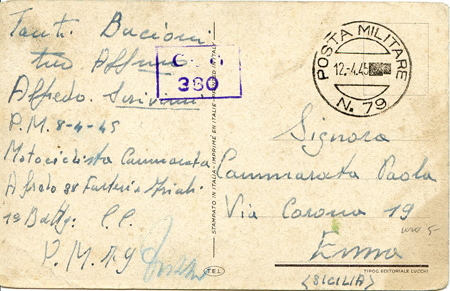 Tanti Bacioni
tuo Affmo
Alfredo. Scrivimi
P.M. 8-4-45
Motociclista Cammarata
Alfredo 88 Fanteria Friuli
1º Battg. C.C.
P.M. 79
360
STAMPATO IN ITALIA - IMPRIMÉ EN ITALIE
POSTA MILITARE
12.-4.45
N. 79
Signora
Cammarata Paola
Via Corona 19
Enna
(SICILIA)
TEL
TIPOG. EDITORIALE LUCCHI